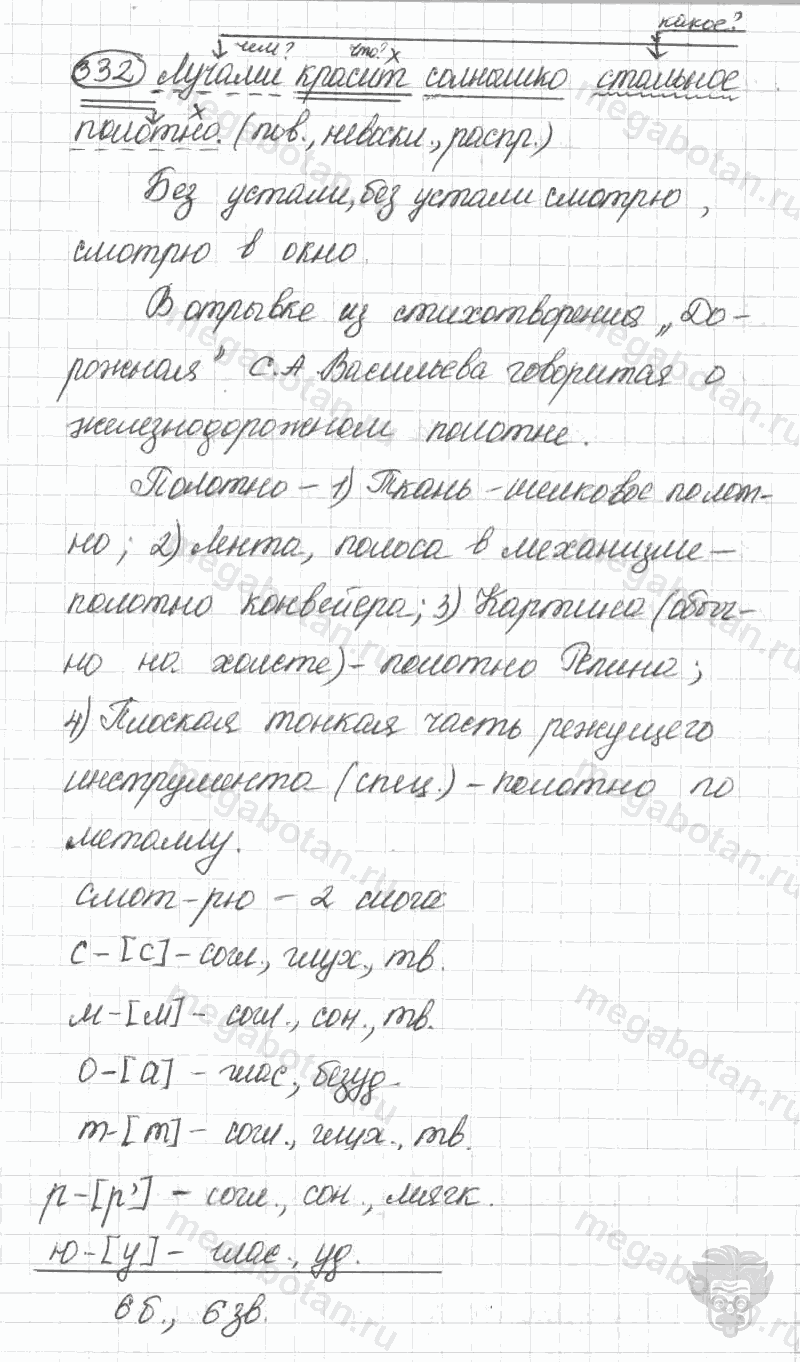 какое?
чем? что? х
332 Лучами красит солнышко стальное
х
полотно. (пов., невоскл., распр.)
Без устали, без устали смотрю,
смотрю в окно.
В отрывке из стихотворения „До-
рожная" С.А Васильева говорится о
железнодорожном полотне.
Полотно – 1) Ткань – шелковое полот-
но; 2) Лента, полоса в механизме –
полотно конвейера; 3) Картина (обыч-
но на холсте) – полотно Репина;
4) Плоская тонкая часть режущего
инструмента (спец.) – полотно по
металлу.
смот-рю – 2 слога
с – [с] – согл., глух., тв.
м – [м] – согл., сон., тв.
о – [а] – глас., безуд.
т – [т] – согл., глух., тв.
р – [р'] – согл., сон., мягк.
ю – [у] – глас., уд.
6 б., 6 зв.
megabotan.ru